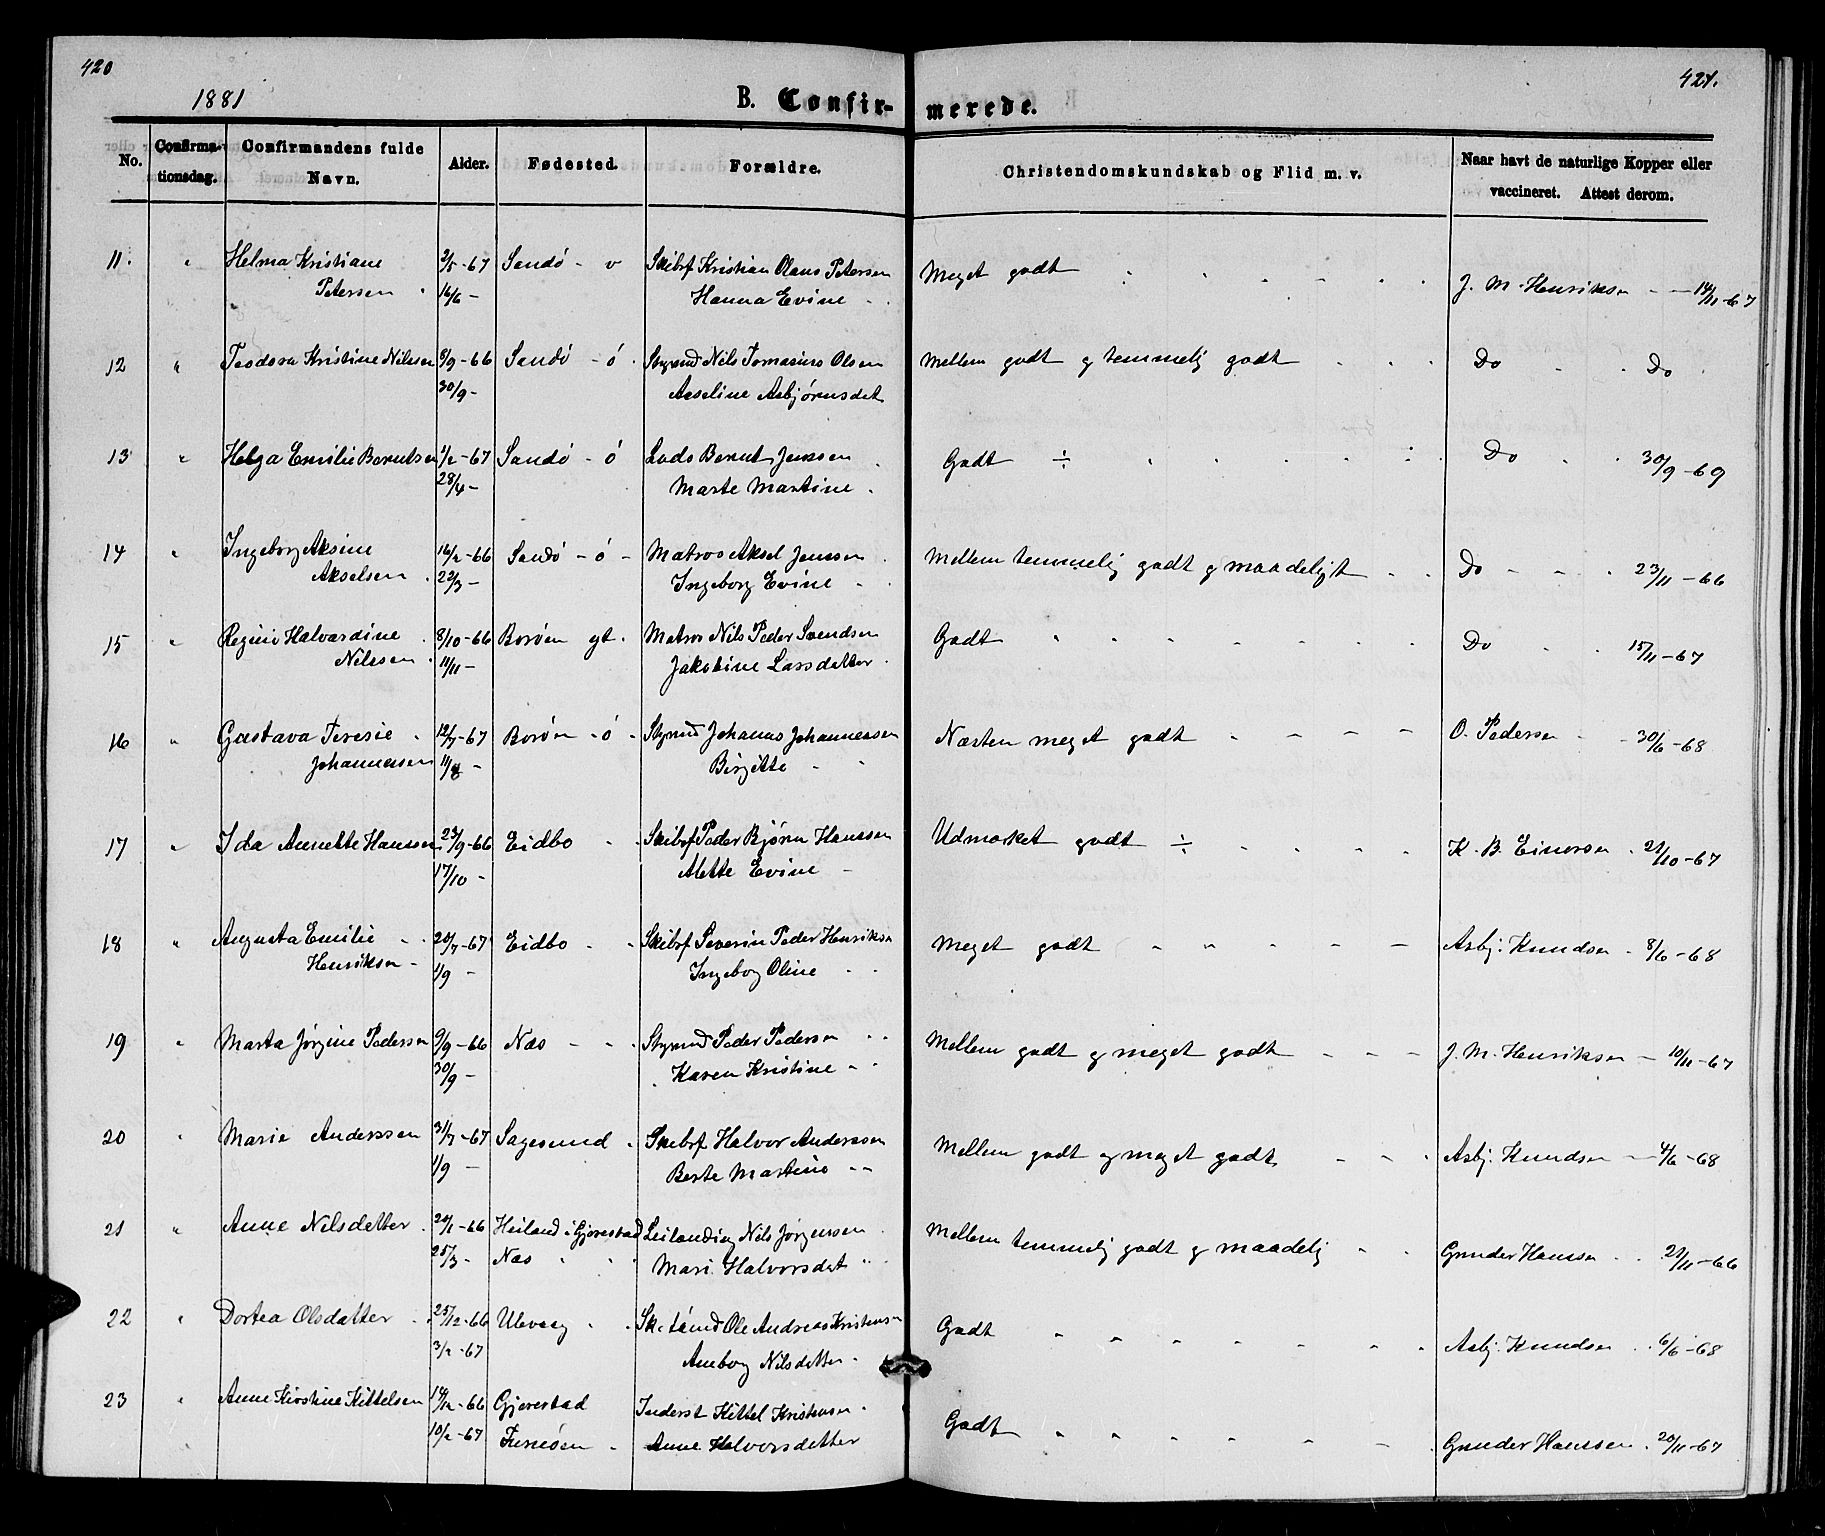 420
421.
1881
B. Confir-
merede.
No. Confirma-tionsdag. Confirmandens fulde Navn. Alder. Fødested. Forældre. Christendomskundskab og Flid m. v. Naar havt de naturlige Kopper eller vaccineret. Attest derom.
11. " Helma Kristiane 2/5-67 Sandö - v Skibsf Kristian Olaus Petersen Meget godt J. M. Henriksen - 14/11-67
Petersen 16/6 - Hanna Evine
12 " Teodora Kristine Nilsen 8/9-66 Sandö - ö Styrmd Nils Tomasius Olsen Mellem godt og temmelig godt Do Do
30/9 - Asseline Asbjørnsdat
13 " Helga Emilie Berntsen 1/2-67 Sandö - ö Lods Bernt Jenssen Godt ÷ Do 30/9-69
28/4 - Marte Martine
14 " Ingeborg Aksine 16/2-66 Sandö - ö - Matros Aksel Jenssen Mellem temmelig godt og maadeligt Do 23/11-66
Akselsen 22/3 - Ingeborg Evine
15 " Regine Halvardine 8/10-66 Boröen yt. Matros Nils Peder Svendsen Godt Do 15/11-67
Nilssen 11/11 - Jakobine Larsdatter
16 " Gustava Teresie 12/7-67 Borön - ö Styrmd Johannes Johannessen Næsten meget godt O. Pedersen - 30/6-68
Johannessen 11/8 - Birgitte
17 " Ida Annette Hanssen 23/9-66 Eidbo Skibsf Peder Bjørn Hanssen Udmærket godt ÷ K. B. Einersen 21/10-67
17/10 - Alette Evine
18 " Augusta Emilie 20/7-67 Eidbo Skibsf Severin Peder Henriksen Meget godt Asbj. Knudsen 8/6-68
Henriksen 1/9 - Ingeborg Oline
19 " Marta Jørgine Pedersen 9/9-66 Næs Styrmd Peder Pedersen Mellem godt og meget godt J. M. Henriksen - 10/11-67
30/9 - Karen Kristine
20 " Marie Anderssen 31/7-67 Sagesund Skibsf Halvor Anderssen Mellem godt og meget godt Asbj. Knudsen - 4/6-68
1/9 - Berte Martine
21 " Anne Nilsdetter 20/1-66 Heiland i Gjerestad Leilænding Nils Jørgenssen Mellem temmelig godt og maadelig Gunder Hanssen 21/11-66
25/3 - Næs Mari Halvorsdat
22 " Dortea Olsdatter 25/12-66 Ulevaag Sk. tömd Ole Andreas Kristensen Godt Asbj. Knudsen 6/6-68
3/2-67 Anborg Nilsdetter
23 " Anne Kirstine Kittelsen 14/12-66 Gjerestad Inderst Kittel Kristensen Godt Gunder Hanssen 20/11-67
10/2-67 Furuöen Anne Halvorsdetter